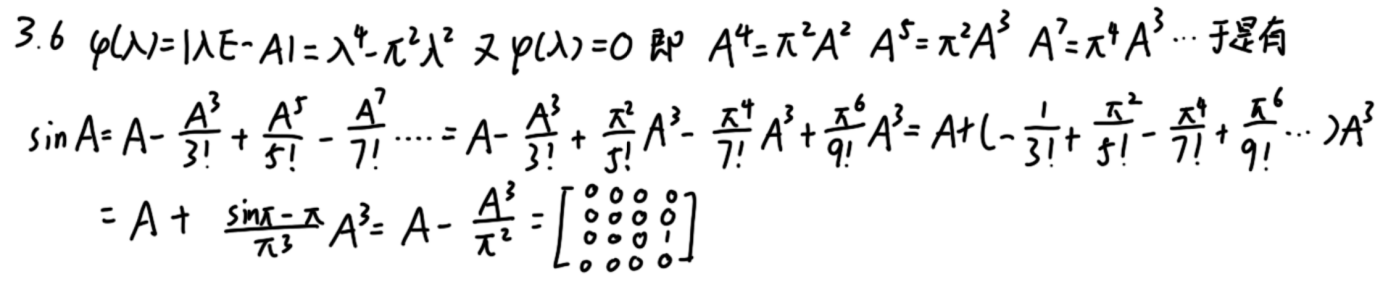 3.6 φ(λ)=|λE-A|=λ⁴-π²λ² 又φ(λ)=0 即 A⁴=π²A² A⁵=π²A³ A⁷=π⁴A³… 于是有
sin A = A - A³/3! + A⁵/5! - A⁷/7! …… = A - A³/3! + π²/5! A³ - π⁴/7! A³ + π⁶/9! A³ = A+(-1/3! + π²/5! - π⁴/7! + π⁶/9! …)A³
= A + (sinπ-π)/π³ A³ = A - A³/π² = [0 0 0 0; 0 0 0 0; 0 0 0 1; 0 0 0 0]